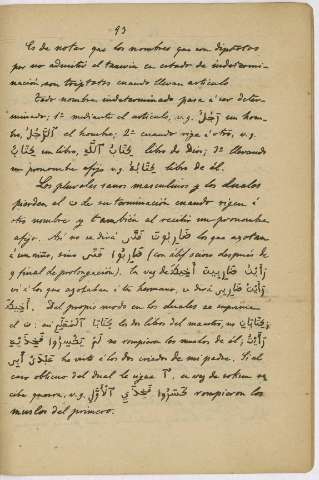 93
Es de notar que los nombres que son diptotos
por no admitir el tanuin en estado de indetermi-
nación son triptotos cuando llevan artículo
Todo nombre indeterminado pasa á ser deter-
minado; 1º mediante el artículo, v.g. رَجُلٌ un hom-
bre, الرَّجُلُ el hombre; 2º cuando rige á otro, v.g.
كِتَابٌ un libro, كِتَابُ اللّٰهِ libro de Dios; 3º llevando
un pronombre afijo v.g. كِتَابُهُ libro de él.
Los plurales sanos masculinos y los duales
pierden el ن de su terminación cuando rigen á
otro nombre y también al recibir un pronombre
afijo. Así no se dirá ضَارِبُونَ los que azotan
á un niño, sino ضَارِبُوا (con alif ocioso después de
و final de prolongación). En vez de رَأَيْتُ ضَارِبِينَ أَخِيكَ
vi á los que azotaban á tu hermano, se dirá رَأَيْتُ ضَارِبِي
أَخِيكَ. Del propio modo en los duales se suprime
el ن: así كِتَابَا المُعَلِّمِ los dos libros del maestro,
لَمْ يَكْسِرُوا فَخِذَيْهِ no rompieron los muslos de él;
رَأَيْتُ عَبْدَيْ أَبِي he visto á los dos criados de mi padre. Si al
caso oblicuo del dual le sigue أ, en vez de sokun se
v.g. كَسَرُوا فَخِذَيِ الأَوَّلِ rompieron los
muslos del primero.